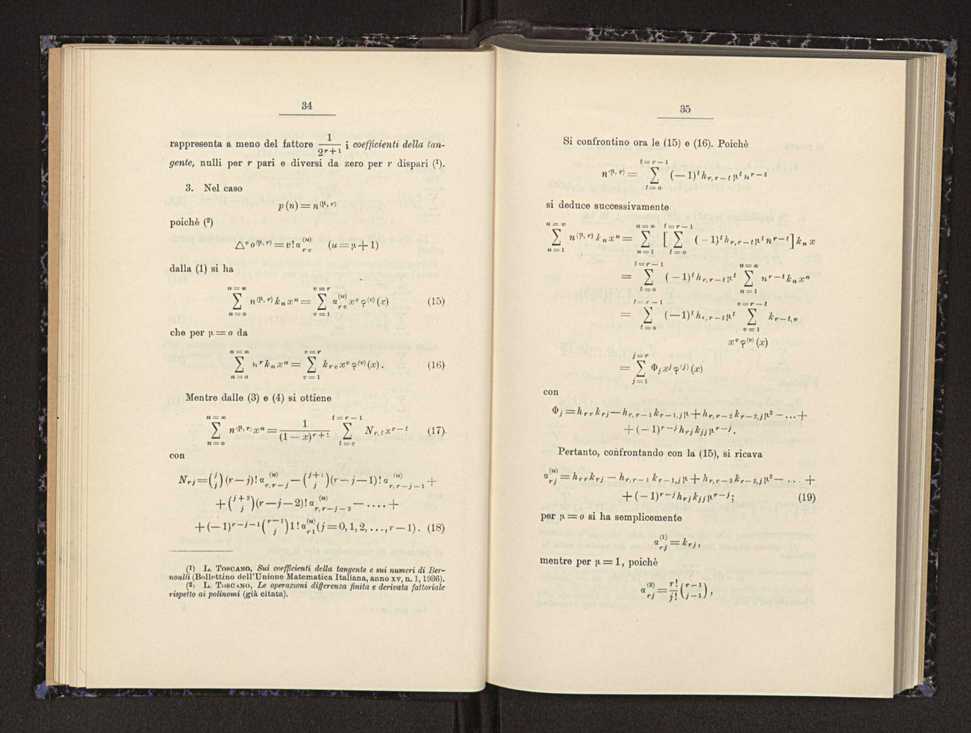 34
rappresenta a meno del fattore 1/2^{r+1} i coefficienti della tan-
gente, nulli per r pari e diversi da zero per r dispari (¹).
3. Nel caso
p (n) = n^{(μ, r)}
poichè (²)
△^v o^{(μ, r)} = v! a_{rv}^{(u)} (u = μ + 1)
dalla (1) si ha
∑_{n=o}^{n=∞} n^{(μ, r)} k_n x^n = ∑_{v=1}^{v=r} a_{rv}^{(u)} x^v φ^{(v)} (x) (15)
che per μ = o da
∑_{n=o}^{n=∞} n^r k_n x^n = ∑_{v=1}^{v=r} k_{rv} x^v φ^{(v)} (x). (16)
Mentre dalle (3) e (4) si ottiene
∑_{n=o}^{n=∞} n^{(μ, r)} x^n = 1/(1 — x)^{r+1} ∑_{t=o}^{t=r—1} N_{r,t} x^{r—t} (17)
con
N_{rj} = (j j) (r—j)! a_{r,r—j}^{(u)} — (j+1 j) (r—j—1)! a_{r,r—j—1}^{(u)} +
+ (j+2 j) (r—j—2)! a_{r,r—j—2}^{(u)} — .... +
+ (—1)^{r—j—1} (r—1 j) 1! a_{r1}^{(u)} (j = 0, 1, 2, ..., r — 1). (18)
(¹) L. TOSCANO, Sui coefficienti della tangente e sui numeri di Ber-
noulli (Bollettino dell'Unione Matematica Italiana, anno XV, n. 1, 1936).
(²) L. TOSCANO, Le operazioni differenza finita e derivata fattoriale
rispetto ai polinomi (già citata).
35
Si confrontino ora le (15) e (16). Poichè
n^{(μ, r)} = ∑_{t=o}^{t=r—1} (—1)^t h_{r,r—t} μ^t n^{r—t}
si deduce successivamente
∑_{n=1}^{n=∞} n^{(μ, r)} k_n x^n = ∑_{n=1}^{n=∞} [∑_{t=o}^{t=r—1} (—1)^t h_{r,r—t} μ^t n^{r—t}] k_n x
= ∑_{t=o}^{t=r—1} (—1)^t h_{r,r—t} μ^t ∑_{n=1}^{n=∞} n^{r—t} k_n x^n
= ∑_{t=o}^{t=r—1} (—1)^t h_{r,r—t} μ^t ∑_{v=1}^{v=r—t} k_{r—t,v}
x^v φ^{(v)} (x)
= ∑_{j=1}^{j=r} Φ_j x^j φ^{(j)} (x)
con
Φ_j = h_{rr} k_{rj} — h_{r,r—1} k_{r—1,j} μ + h_{r,r—2} k_{r—2,j} μ² — ... +
+ (—1)^{r—j} h_{rj} k_{jj} μ^{r—j}.
Pertanto, confrontando con la (15), si ricava
a_{rj}^{(u)} = h_{rr} k_{rj} — h_{r,r—1} k_{r—1,j} μ + h_{r,r—2} k_{r—2,j} μ² — ... +
+ (—1)^{r—j} h_{rj} k_{jj} μ^{r—j}; (19)
per μ = o si ha semplicemente
a_{rj}^{(1)} = k_{rj},
mentre per μ = 1, poichè
a_{rj}^{(2)} = r!/j! (r—1 j—1),